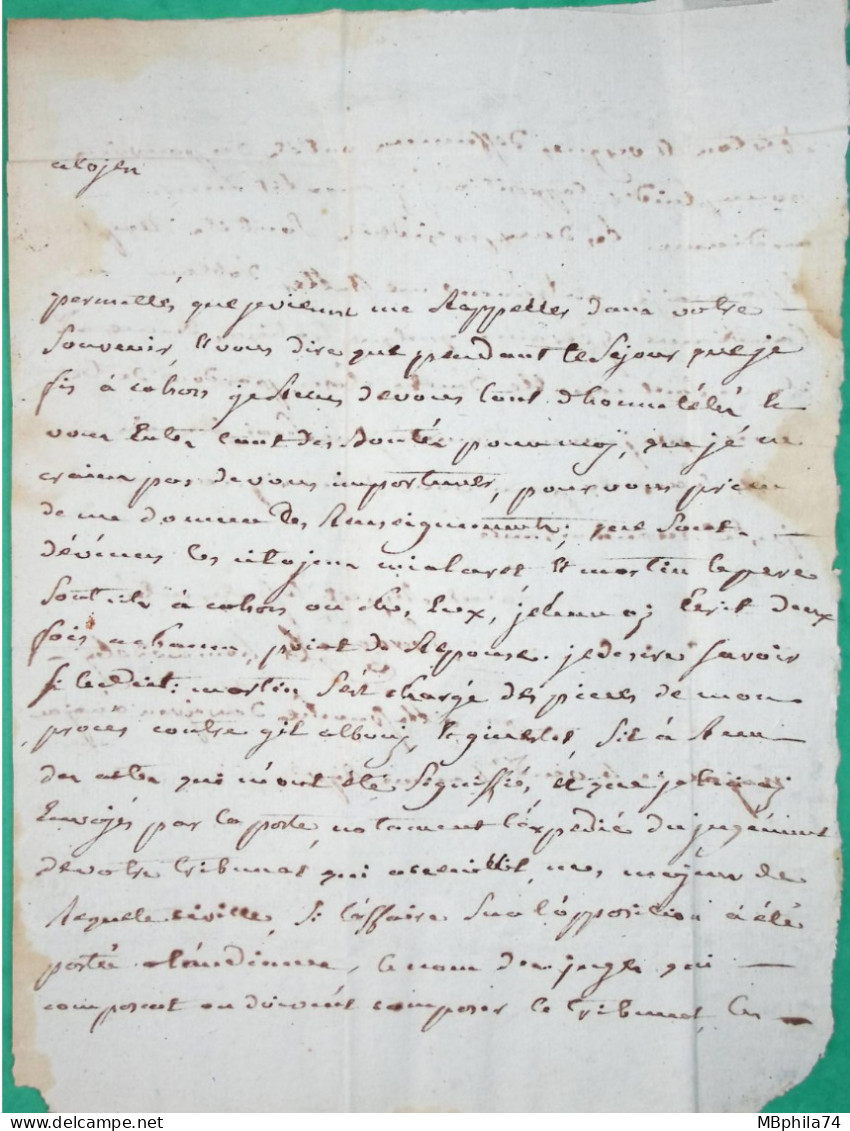 citoyen
permettés que je vienne me Rappeller dans votre
souvenir, et vous dire que pendant le séjour que je
fis à cahors je Reçus de vous tant d'honnêteté et
vous Eutes tant des Bontés pour moy, que je ne
crains pas de vous importuner, pour vous prier
de me donner des Renseignements, que sont
dévénus les citoyens mialaret et martin lapere
sont ils à cahors ou chés Eux, je leur ay Ecrit deux
fois a chacun point de Réponse. je desire savoir
si ledit martin s'ést chargé des pieces de mon
procés contre gil albouy, s'il à Reçu
des actes qui m'ont été signiffiés, et que je lui ai
Envoyés par la poste, notament l'éxpedié du jugément
de votre tribunal qui accueillit mes moyens de
Requete civille, si l'affaire sur l'opposition à été
portée à l'audiance, le nom des juges qui
composent ou doivent composer le tribunal, les
MBphila74